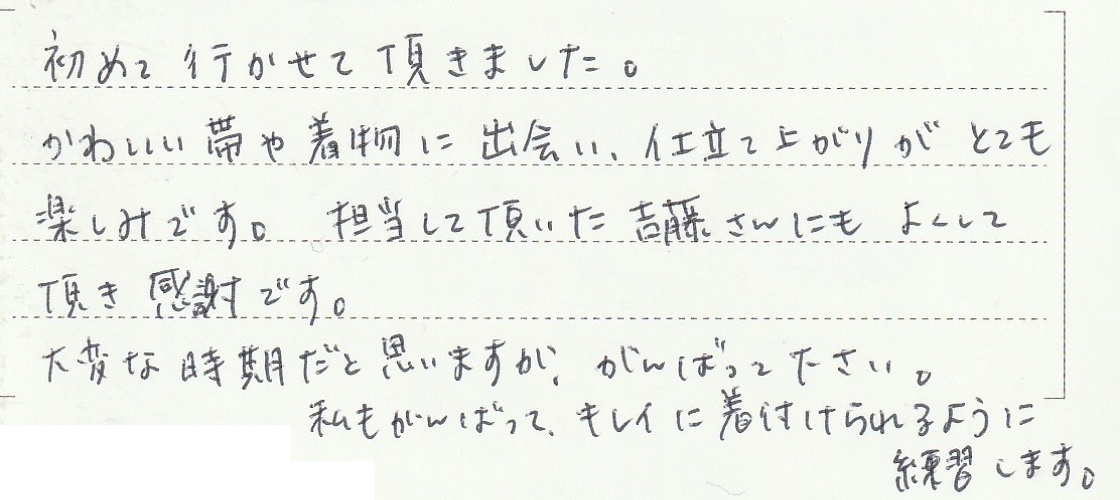 初めて行かせて頂きました。
かわいい帯や着物に出会い、仕立て上がりがとても
楽しみです。 担当して頂いた吉藤さんにもよくして
頂き感謝です。
大変な時期だと思いますが、がんばって下さい。
私もがんばって、キレイに着付けられるように
練習します。